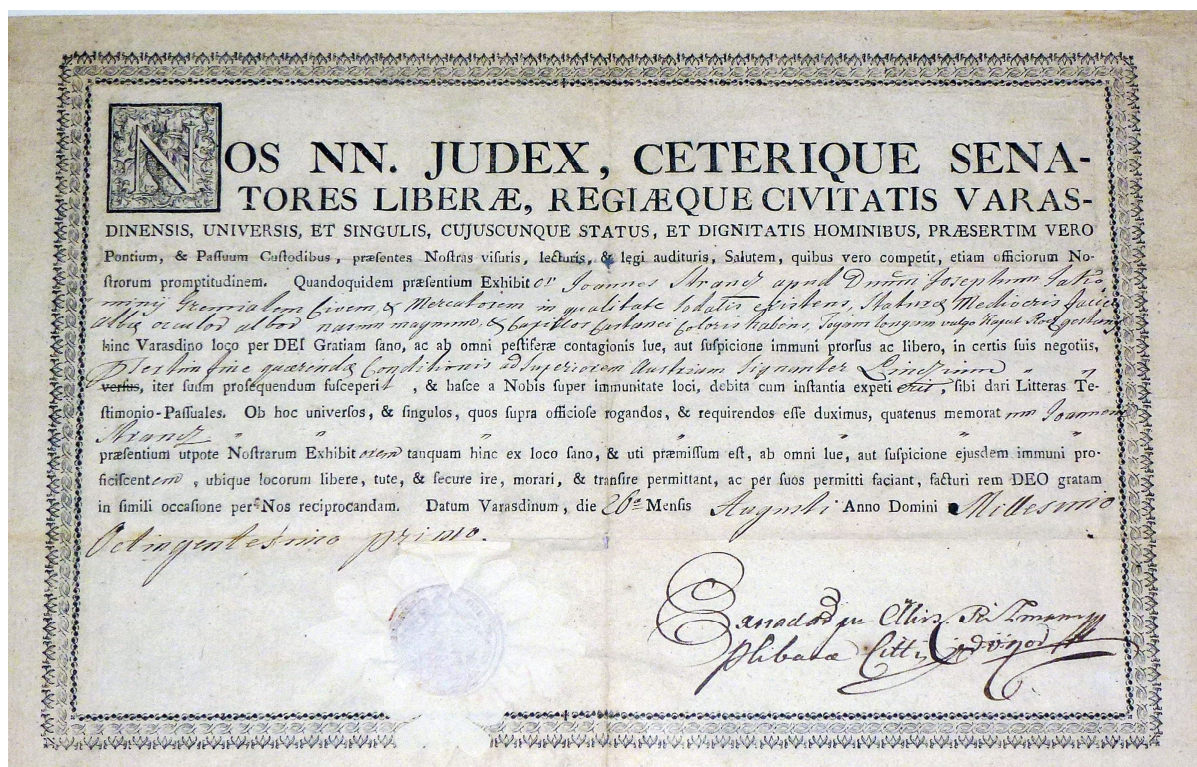 NOS NN. JUDEX, CETERIQUE SENA-
TORES LIBERÆ, REGIÆQUE CIVITATIS VARAS-
DINENSIS, UNIVERSIS, ET SINGULIS, CUJUSCUNQUE STATUS, ET DIGNITATIS HOMINIBUS, PRÆSERTIM VERO
Pontium, & Paſſuum Cuſtodibus, præſentes Noſtras viſuris, lecturis, & legi audituris, Salutem, quibus vero competit, etiam officiorum No-
ſtrorum promptitudinem. Quandoquidem præſentium Exhibitor Joannes apud Dnum Josephum
Gremialem Civem, & Mercatorem in qualitate Sodalis existens, Staturæ Mediocris faciei
albæ occulos albos nasum magnum, & Capillos Castanei Coloris habens, Togam longam vulgo Kaput
hinc Varasdino loco per DEI Gratiam ſano, ac ab omni peſtiferæ contagionis lue, aut ſuspicione immuni prorſus ac libero, in certis ſuis negotiis,
fine quærendæ Conditionis ad Superiorem Austriam Signanter
verſus, iter ſuum proſequendum ſusceperit, & haſce a Nobis ſuper immunitate loci, debita cum inſtantia expetierit, ſibi dari Litteras Te-
ſtimonio-Paſſuales. Ob hoc univerſos, & ſingulos, quos ſupra officioſe rogandos, & requirendos eſſe duximus, quatenus memoratum Joannem
præſentium utpote Noſtrarum Exhibitorem tanquam hinc ex loco ſano, & uti præmiſſum eſt, ab omni lue, aut ſuspicione ejusdem immuni pro-
ficiſcentem, ubique locorum libere, tute, & ſecure ire, morari, & tranſire permittant, ac per ſuos permitti faciant, facturi rem DEO gratam
in ſimili occaſione per Nos reciprocandam. Datum Varasdinum, die 26a Menſis Augusti Anno Domini Millesimo
Octingentesimo primo.